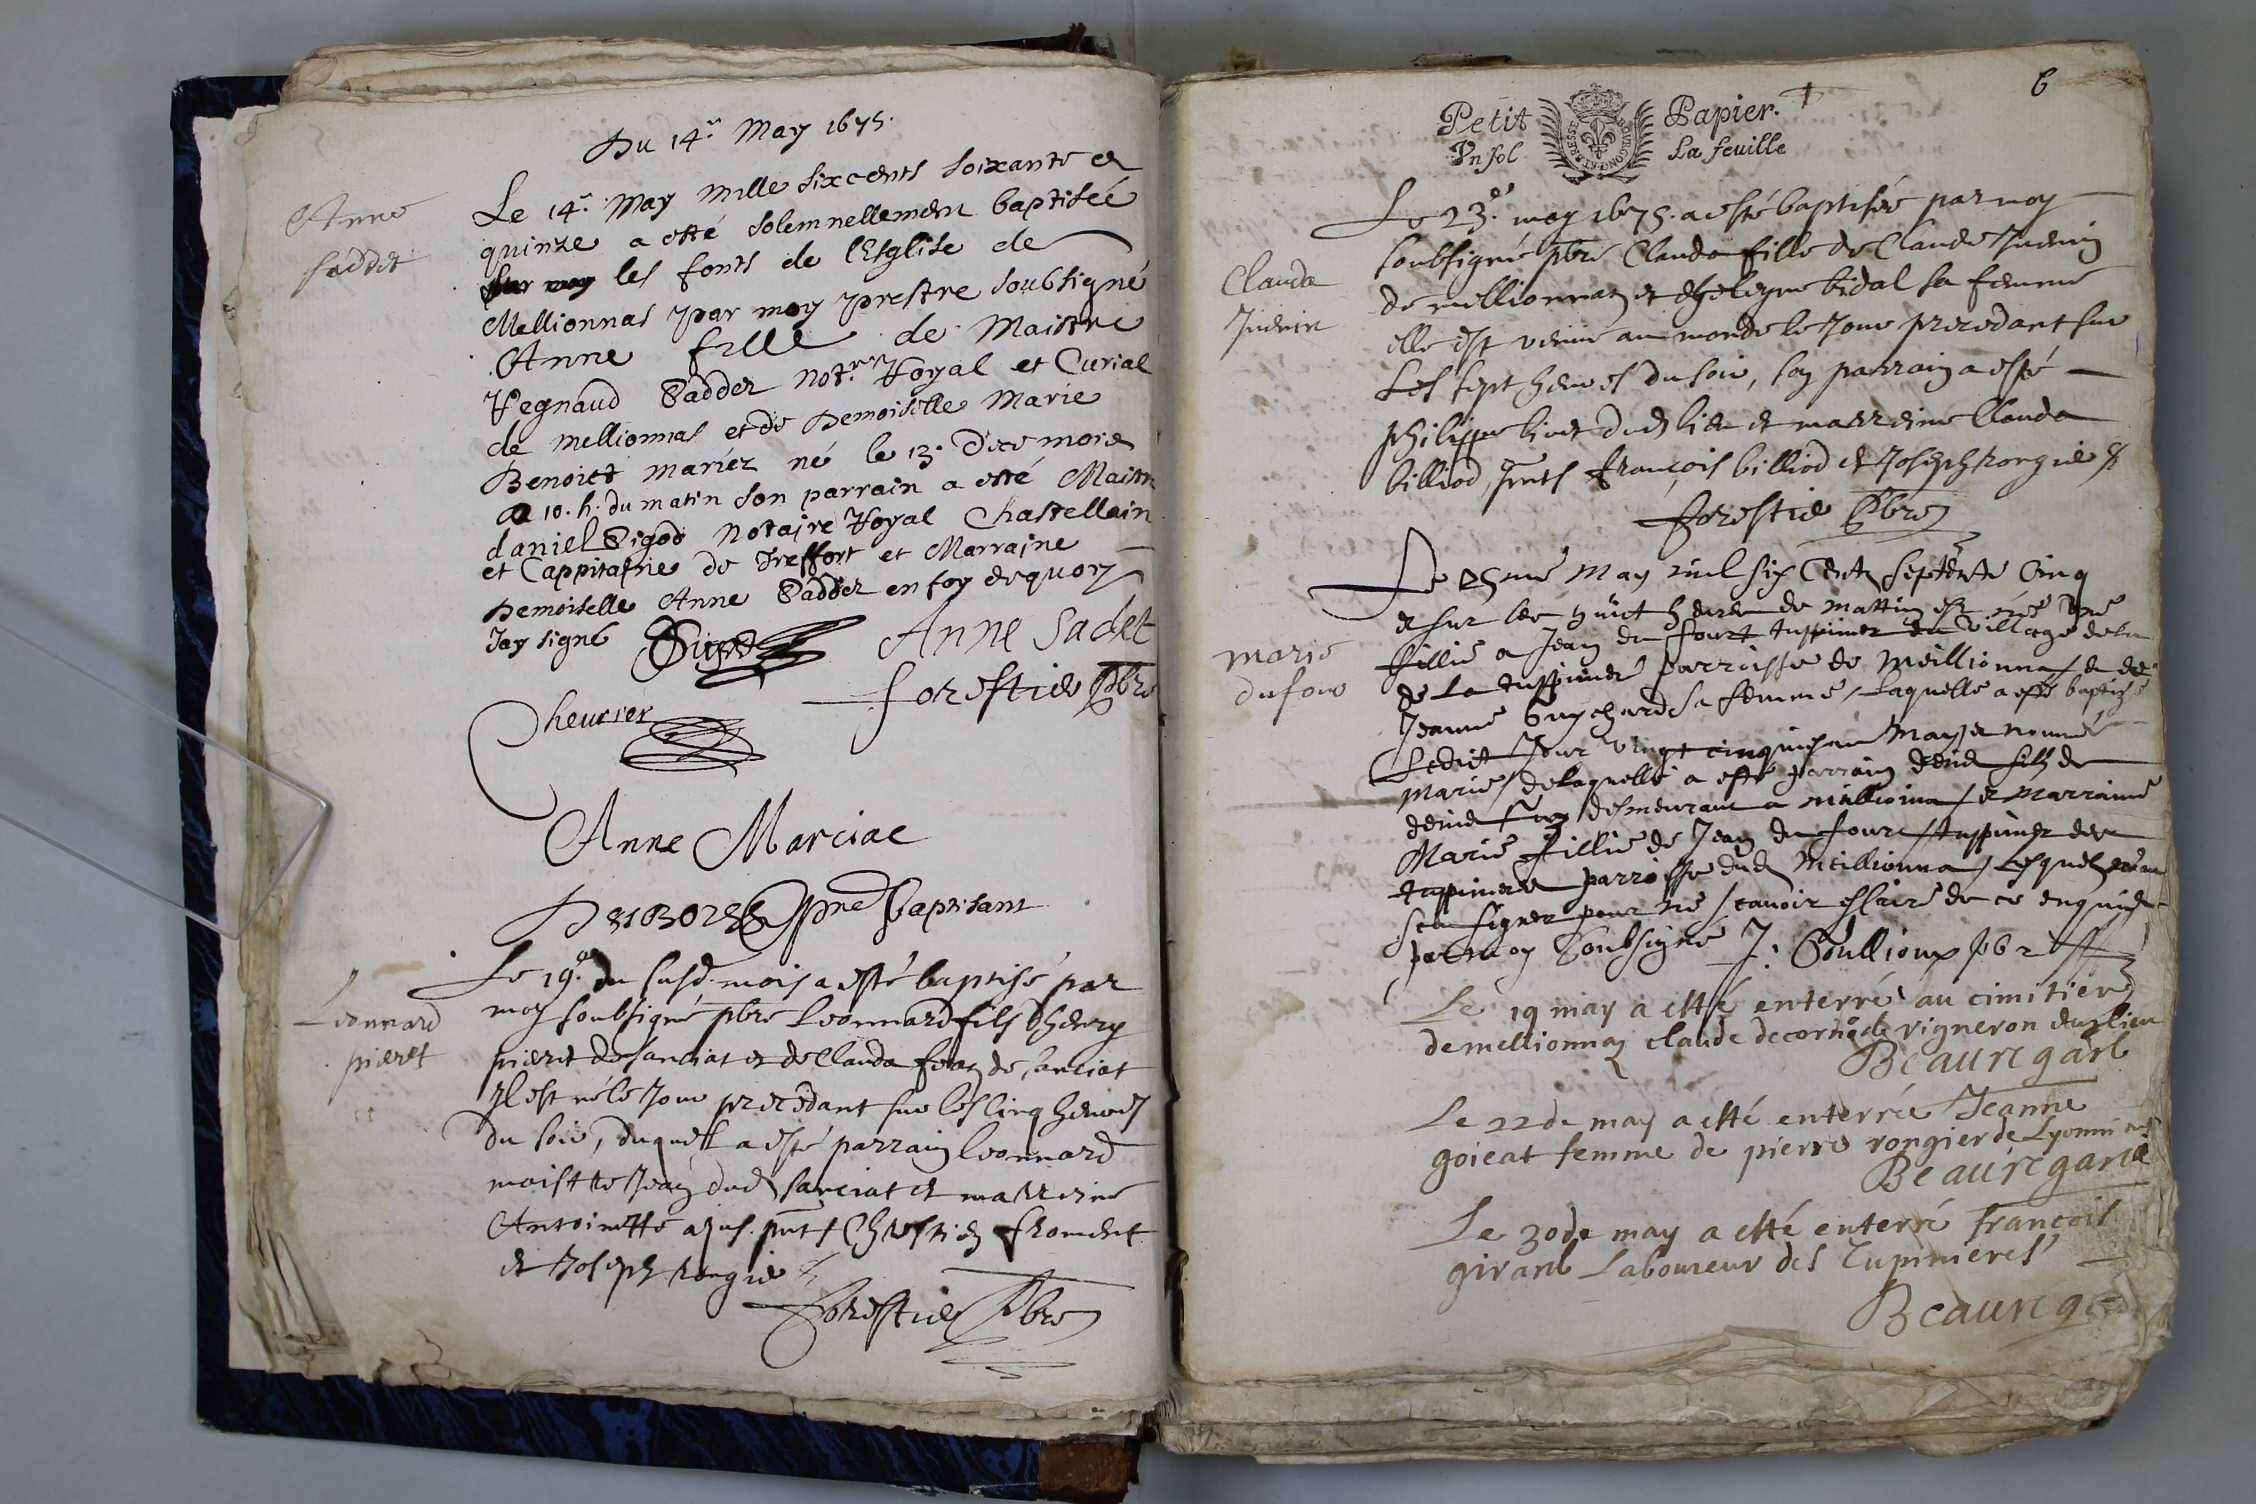 Du 14e May 1675.
Anne
saddet
Le 14e. May mille sixcents soixante et
quinze a esté solemnellement baptisée
sur les fonts de l'Esglise de
Mellionnas par moy prestre soubsigné
Anne fille de Maistre
Regnaud Saddet notre Royal et Curial
de mellionnas et de Demoiselle Marie
Benoict mariez né le 13. Dece mois
a 10. h. du matin son parrain a esté Maistre
daniel Sigod Notaire Royal Chastellain
et Cappitaine de Treffort et Marraine
Demoiselle Anne Saddet en foy dequoy
Jay signé
Anne Sadet
forestier Pbre
Cheurier
Anne Marciac
pne baptisant
Leonnard
pieret
Le 19e du susd. mois a esté baptisé par
moy soubsigné pbre Leonnard fils dhenry
pieret de sanciat et de Clauda feaz de sanciat
Il est né le Jour precedant sur les cinq heures
du soir, duquel a esté parrain leonnard
dud sanciat et marreine
Antoinette pnts froment
et Joseph rongier
Forestier Pbre
6
Petit Papier.
Vn sol La feuille
BRESSE BOVRGONG ET
Clauda
Juenin
Le 23e. may 1675. a esté baptisée par moy
soubsigné pbre Clauda fille de Claude Juenin
de mellionnaz et vidal sa femme
elle est venue au monde le Jour precedant sur
Les sept heures du soir, son parrain a esté
philippe dud lieu et marreine Clauda
billiod, pnts françois billiod et Joseph rongier
Forestier Pbre
marie
dufour
Le 25me May mil six Cent septente Cinq
et sur les huict heures de mattin est née une
fillie a Jean du fourt tuppinier du village de la
de La tuppinieré parroisse de Meillionnas et de
Jeanne Guychard sa femme, Laquelle a esté baptizé
Ledict Jour vingt cinquiesme May et nommé
Marie, delaquelle a esté parrain denis filz de
denis desmeurant a millionna et Marraine
Marie fillie de Jean du four tuppinier des
tuppinieres parroisse dud Meillionna, Lesquelz
signer pour ne scavoir de ce enquis
par moy soubsigné J. Goullioux pbr
Le 19 may a esté enterré au cimitiere
de mellionnaz claude decorno vigneron dud lieu
Beauregard
Le 22 de may a esté enterrée Jeanne
goieat femme de pierre rongier de Lyonnieres
Beauregard
Le 30 de may a esté enterré françois
girard Laboureur des Tupinieres
Beaurega